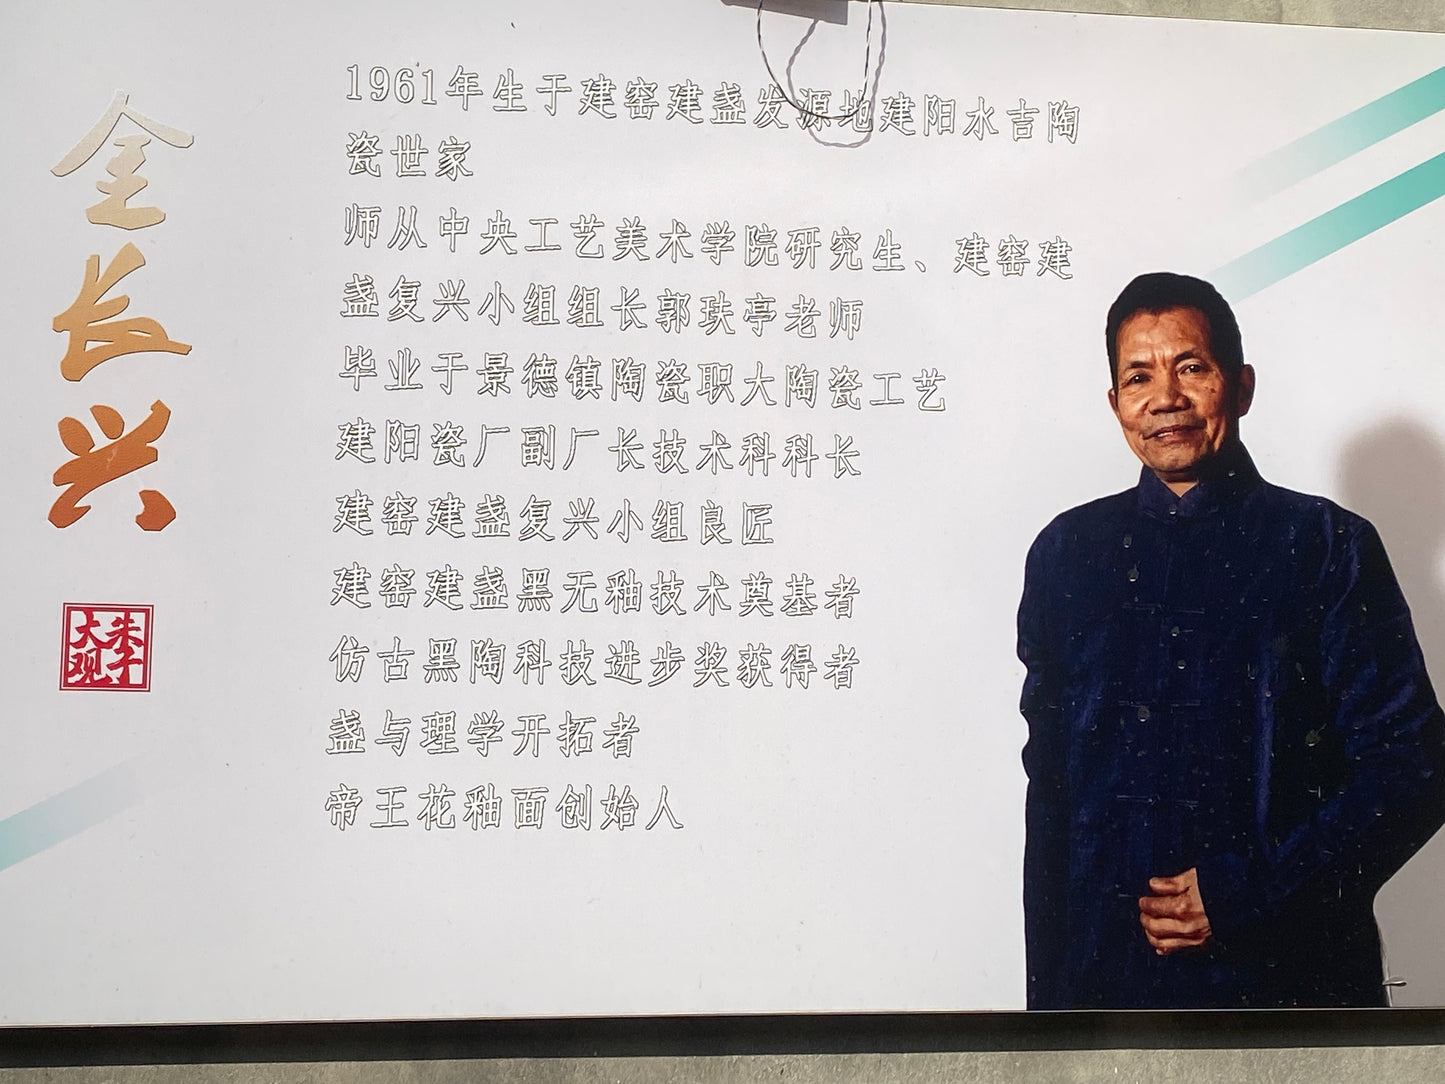 金长兴
朱子
大观
1961年生于建窑建盏发源地建阳水吉陶
瓷世家
师从中央工艺美术学院研究生、建窑建
盏复兴小组组长郭玞亭老师
毕业于景德镇陶瓷职大陶瓷工艺
建阳瓷厂副厂长技术科科长
建窑建盏复兴小组良匠
建窑建盏黑无釉技术奠基者
仿古黑陶科技进步奖获得者
盏与理学开拓者
帝王花釉面创始人